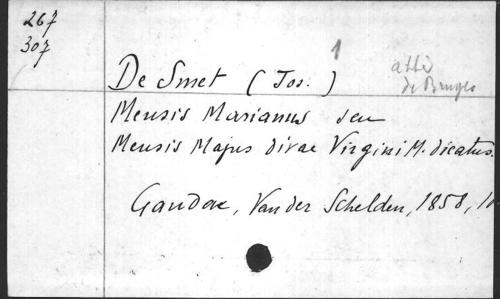 267
307
1
De Smet (Jos.) abbé
de Bruges
Mensis Marianus seu
Mensis Majus divae Virgini M. dicatus.
Gandae, Van der Schelden, 1858, 10